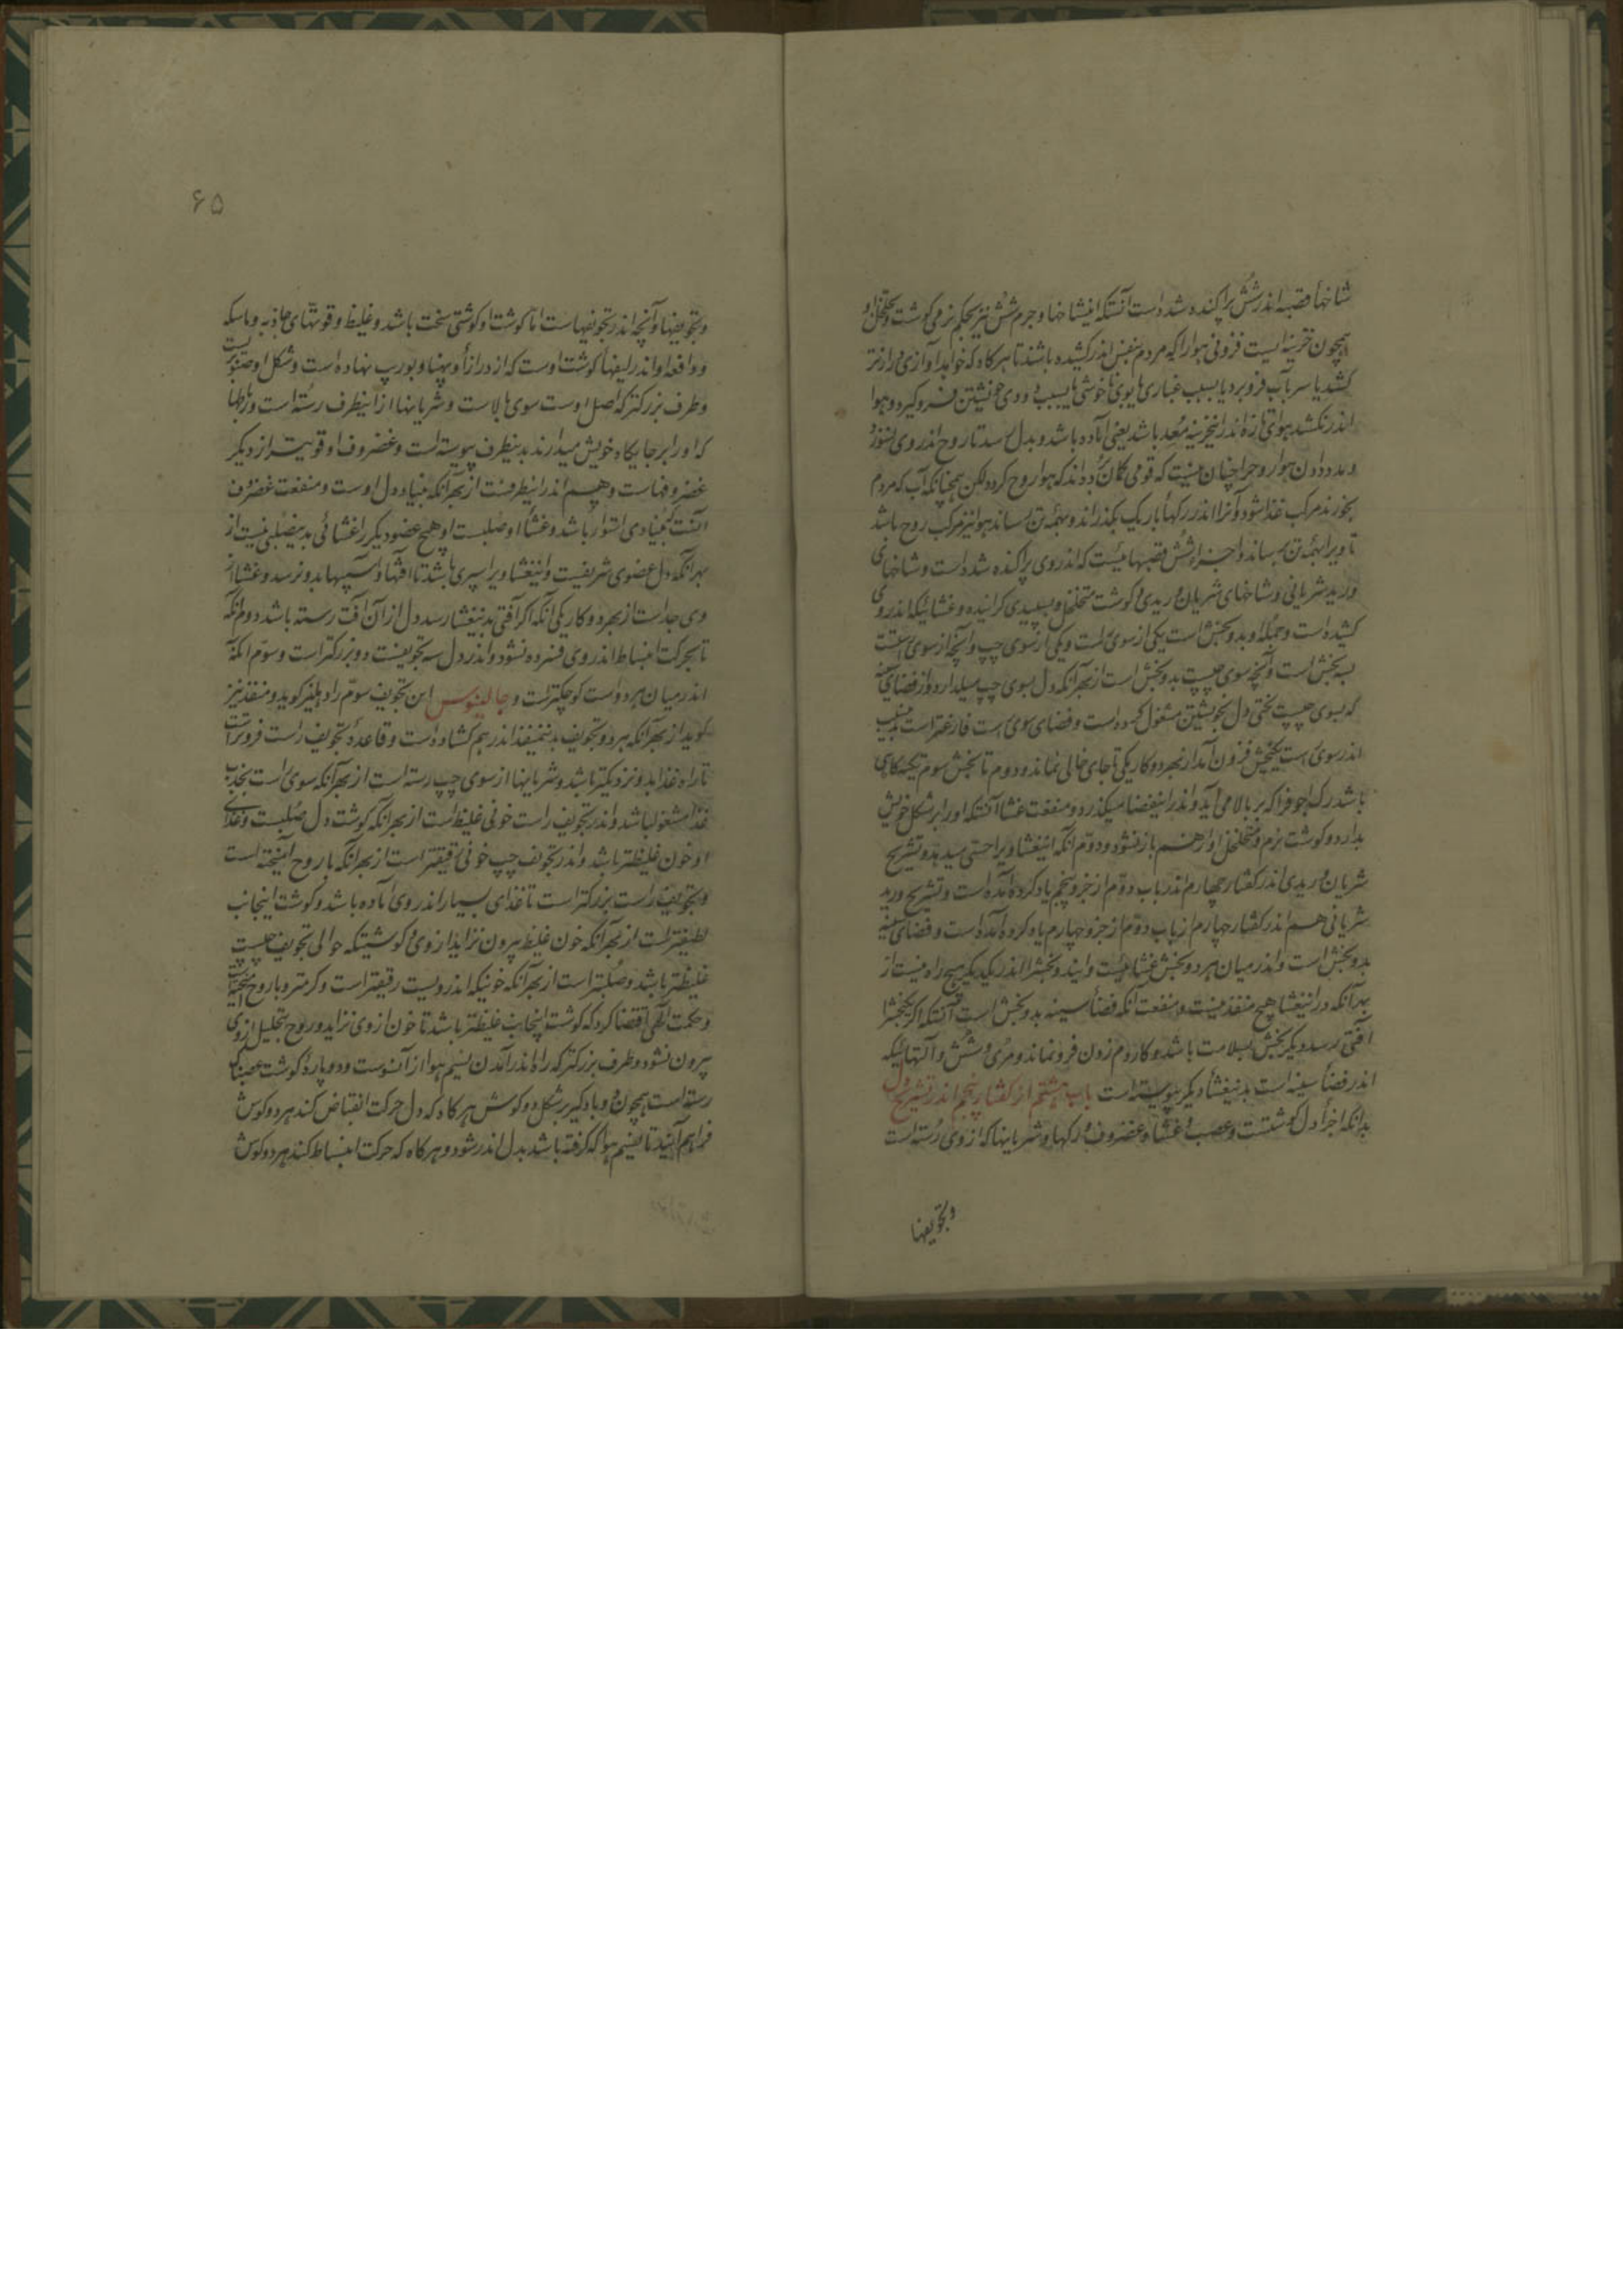 شاخهاء قصبه اندر شش پراکنده شده است آنستکه اینشاخها و جرم شش نیز بحکم نرمی گوشت و تخلخل او
همچون خزینه ایست فزونی هوا را که مردم بنفس اندر کشیده باشند تا هرگاه که خواهد آوازی دراز تر
کشد یا سر بآب فرو برد یا بسبب غباری یا بوی ناخوشی یا بسبب دودی خویشتن فرو گیرد و هوا
اندر نکشد هوای تازه اندر این خزینه معد باشد یعنی آماده باشد و بدل میرسد تا روح اندر وی نسوزد
و مدد دادن هوا روح را چنان نیست که قومی گمان برده اند که هوا روح گردد لکن همچنانکه آب که مردم
بخورند مرکب غذا شود و آنرا اندر رگهاء باریک بگذراند و بهمه تن رساند هوا نیز مرکب روح باشد
تا ویرا بهمه تن برساند و اجزاء شش قصبهائیست که اندر وی پراکنده شده است و شاخهای
ورید شریانی و شاخهای شریان وریدی و گوشت متخلخل و بسپیدی گراینده و غشائیکه اندر وی
کشیده است و جمله او بدو بخش است یکی از سوی راست و یکی از سوی چپ و آنچه از سوی راست
بسه بخش است و آنچه سوی چپست بدو بخش است از بهر آنکه دل بسوی چپ میل دارد و از فضای سینه
که بسوی چپست لختی دل بخویشتن مشغول کرده است و فضای سوی راست فارغتر است بدین سبب
اندر سوی راست یکبخش فزون آمد از بهر دو کار یکی تا جای خالی نماند و دوم تا بخش سوم تکیه گاهی
باشد رگ اجوف را که بر بالا می آید و اندر اینفضا میگذرد و منفعت غشا آنستکه او را بر شکل خویش
بدارد و گوشت نرم و متخلخل او از هم باز نشود و دوم آنکه اینغشا ویرا حسی میدهد و تشریح
شریان وریدی اندر گفتار چهارم اندر باب دوم از جزو پنجم یاد کرده آمده است و تشریح ورید
شریانی هم اندر گفتار چهارم از باب دوم از جزو چهارم یاد کرده آمده است و فضای سینه
بدو بخش است و اندر میان هر دو بخش غشائیست و ایندو بخش را اندر یکدیگر هیچ راه نیست از
بهر آنکه در اینغشا هیچ منفذ نیست و منفعت آنکه فضاء سینه بدو بخش است آنستکه اگر یکبخش را
آفتی رسد دیگر بخش بسلامت باشد و کار دم زدن فرو نماند و مری و شش و آلتهائیکه
اندر فضاء سینه است بدینغشاء دیگر پیوسته است باب هشتم از گفتار پنجم اندر تشریح دل
بدانکه اجزاء دل گوشتست و عصب و غشا و غضروف و رگها و شریانها که از وی رسته است
و تجویفها
۶۵
و تجویفها و آنچه اندر تجویفهاست اما گوشت او گوشتی سخت باشد و غلیظ و قوتهای جاذبه و ماسکه
و دافعه او اندر لیفهاء گوشت اوست که از درازا و پهنا و بورب نهاده است و شکل او صنوبریست
و طرف بزرگتر که اصل اوست سوی بالاست و شریانها از اینطرف رسته است و رباطها
که او را بر جایگاه خویش میدارند بدینطرف پیوسته است و غضروف او قویتر از دیگر
غضروفهاست و هم اندر اینطرفست از بهر آنکه بنیاد دل اوست و منفعت غضروف
آنست که بنیادی استوار باشد و غشاء او صلبست او هیچ عضو دیگر را غشائی بدین صلبی نیست از
بهر آنکه دل عضوی شریفست و اینغشا ویرا سپری باشد تا آفتها و آسیبها بدو نرسد و غشا از
وی جداست از بهر دو کار یکی آنکه اگر آفتی بدینغشا رسد دل از آن آفت رسته باشد دوم آنکه
تا بحرکت انبساط اندر وی فسرده نشود و اندر دل سه تجویفست دو بزرگتر است و سوم آنکه
اندر میان هر دو است کوچکتر است و جالینوس این تجویف سوم را دهلیز گوید و منفذ نیز
گوید از بهر آنکه هر دو تجویف بدین منفذ اندر هم گشاده است و قاعده تجویف راست فروتر است
تا راه غذا بدو نزدیکتر باشد و شریانها از سوی چپ رسته است از بهر آنکه سوی راست بجذب
غذا مشغول باشد و اندر تجویف راست خونی غلیظ است از بهر آنکه گوشت دل صلبست و غذای
او خون غلیظتر باشد و اندر تجویف چپ خونی رقیقتر است از بهر آنکه با روح آمیخته است
و تجویف راست بزرگتر است تا غذای بسیار اندر وی آماده باشد و گوشت اینجانب
لطیفتر است از بهر آنکه خون غلیظ بیرون نزاید از وی و گوشتیکه حوالی تجویف چپست
غلیظتر باشد و صلبتر است از بهر آنکه خونیکه اندر ویست رقیقتر است و گرمتر و با روح آمیخته است
و حکمت الهی اقتضا کرد که گوشت اینجانب غلیظتر باشد تا خون از وی نزاید و روح بتحلیل از وی
بیرون نشود و طرف بزرگتر که راه اندر آمدن نسیم هوا از آنسوست و دو پاره گوشت عصبناک
رسته است همچون دو بادگیر بر شکل دو گوش هرگاه که دل حرکت انقباض کند هر دو گوش
فراهم آیند تا نسیم هوا که گرفته باشد بدل اندر شود و هرگاه که حرکت انبساط کند هر دو گوش